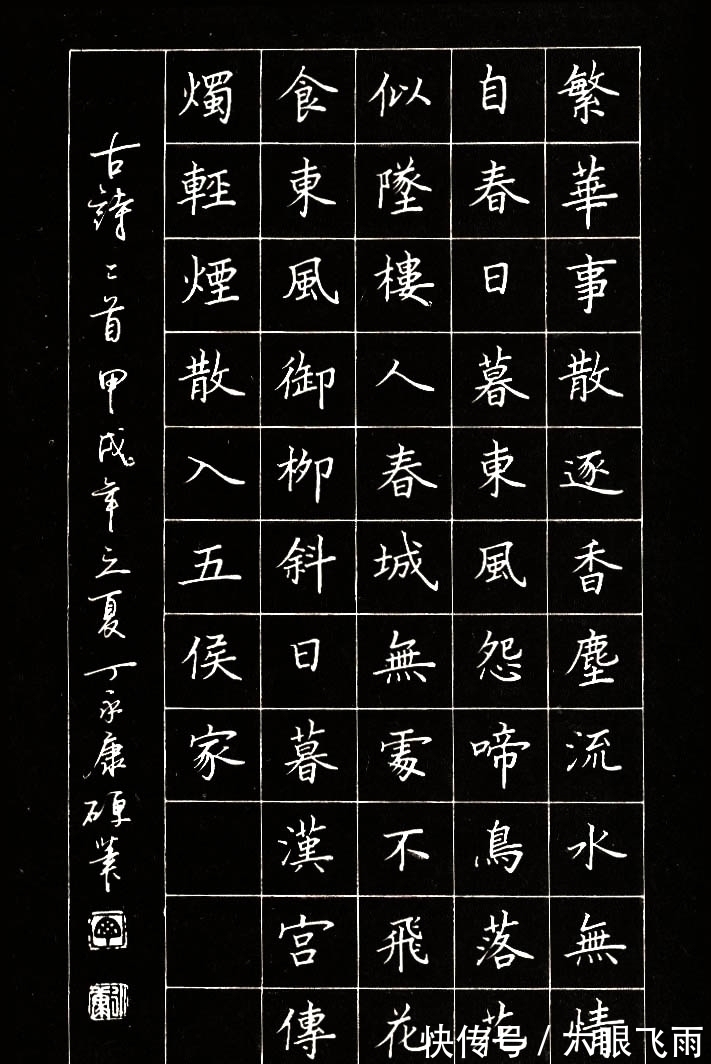 繁華事散逐香塵流水無情
自春日暮東風怨啼鳥落花
似墜樓人春城無處不飛花
食東風御柳斜日暮漢宮傳
燭輕煙散入五侯家
古詩二首甲戌年之夏丁永康硬筆
快传号 / 大眼飞雨